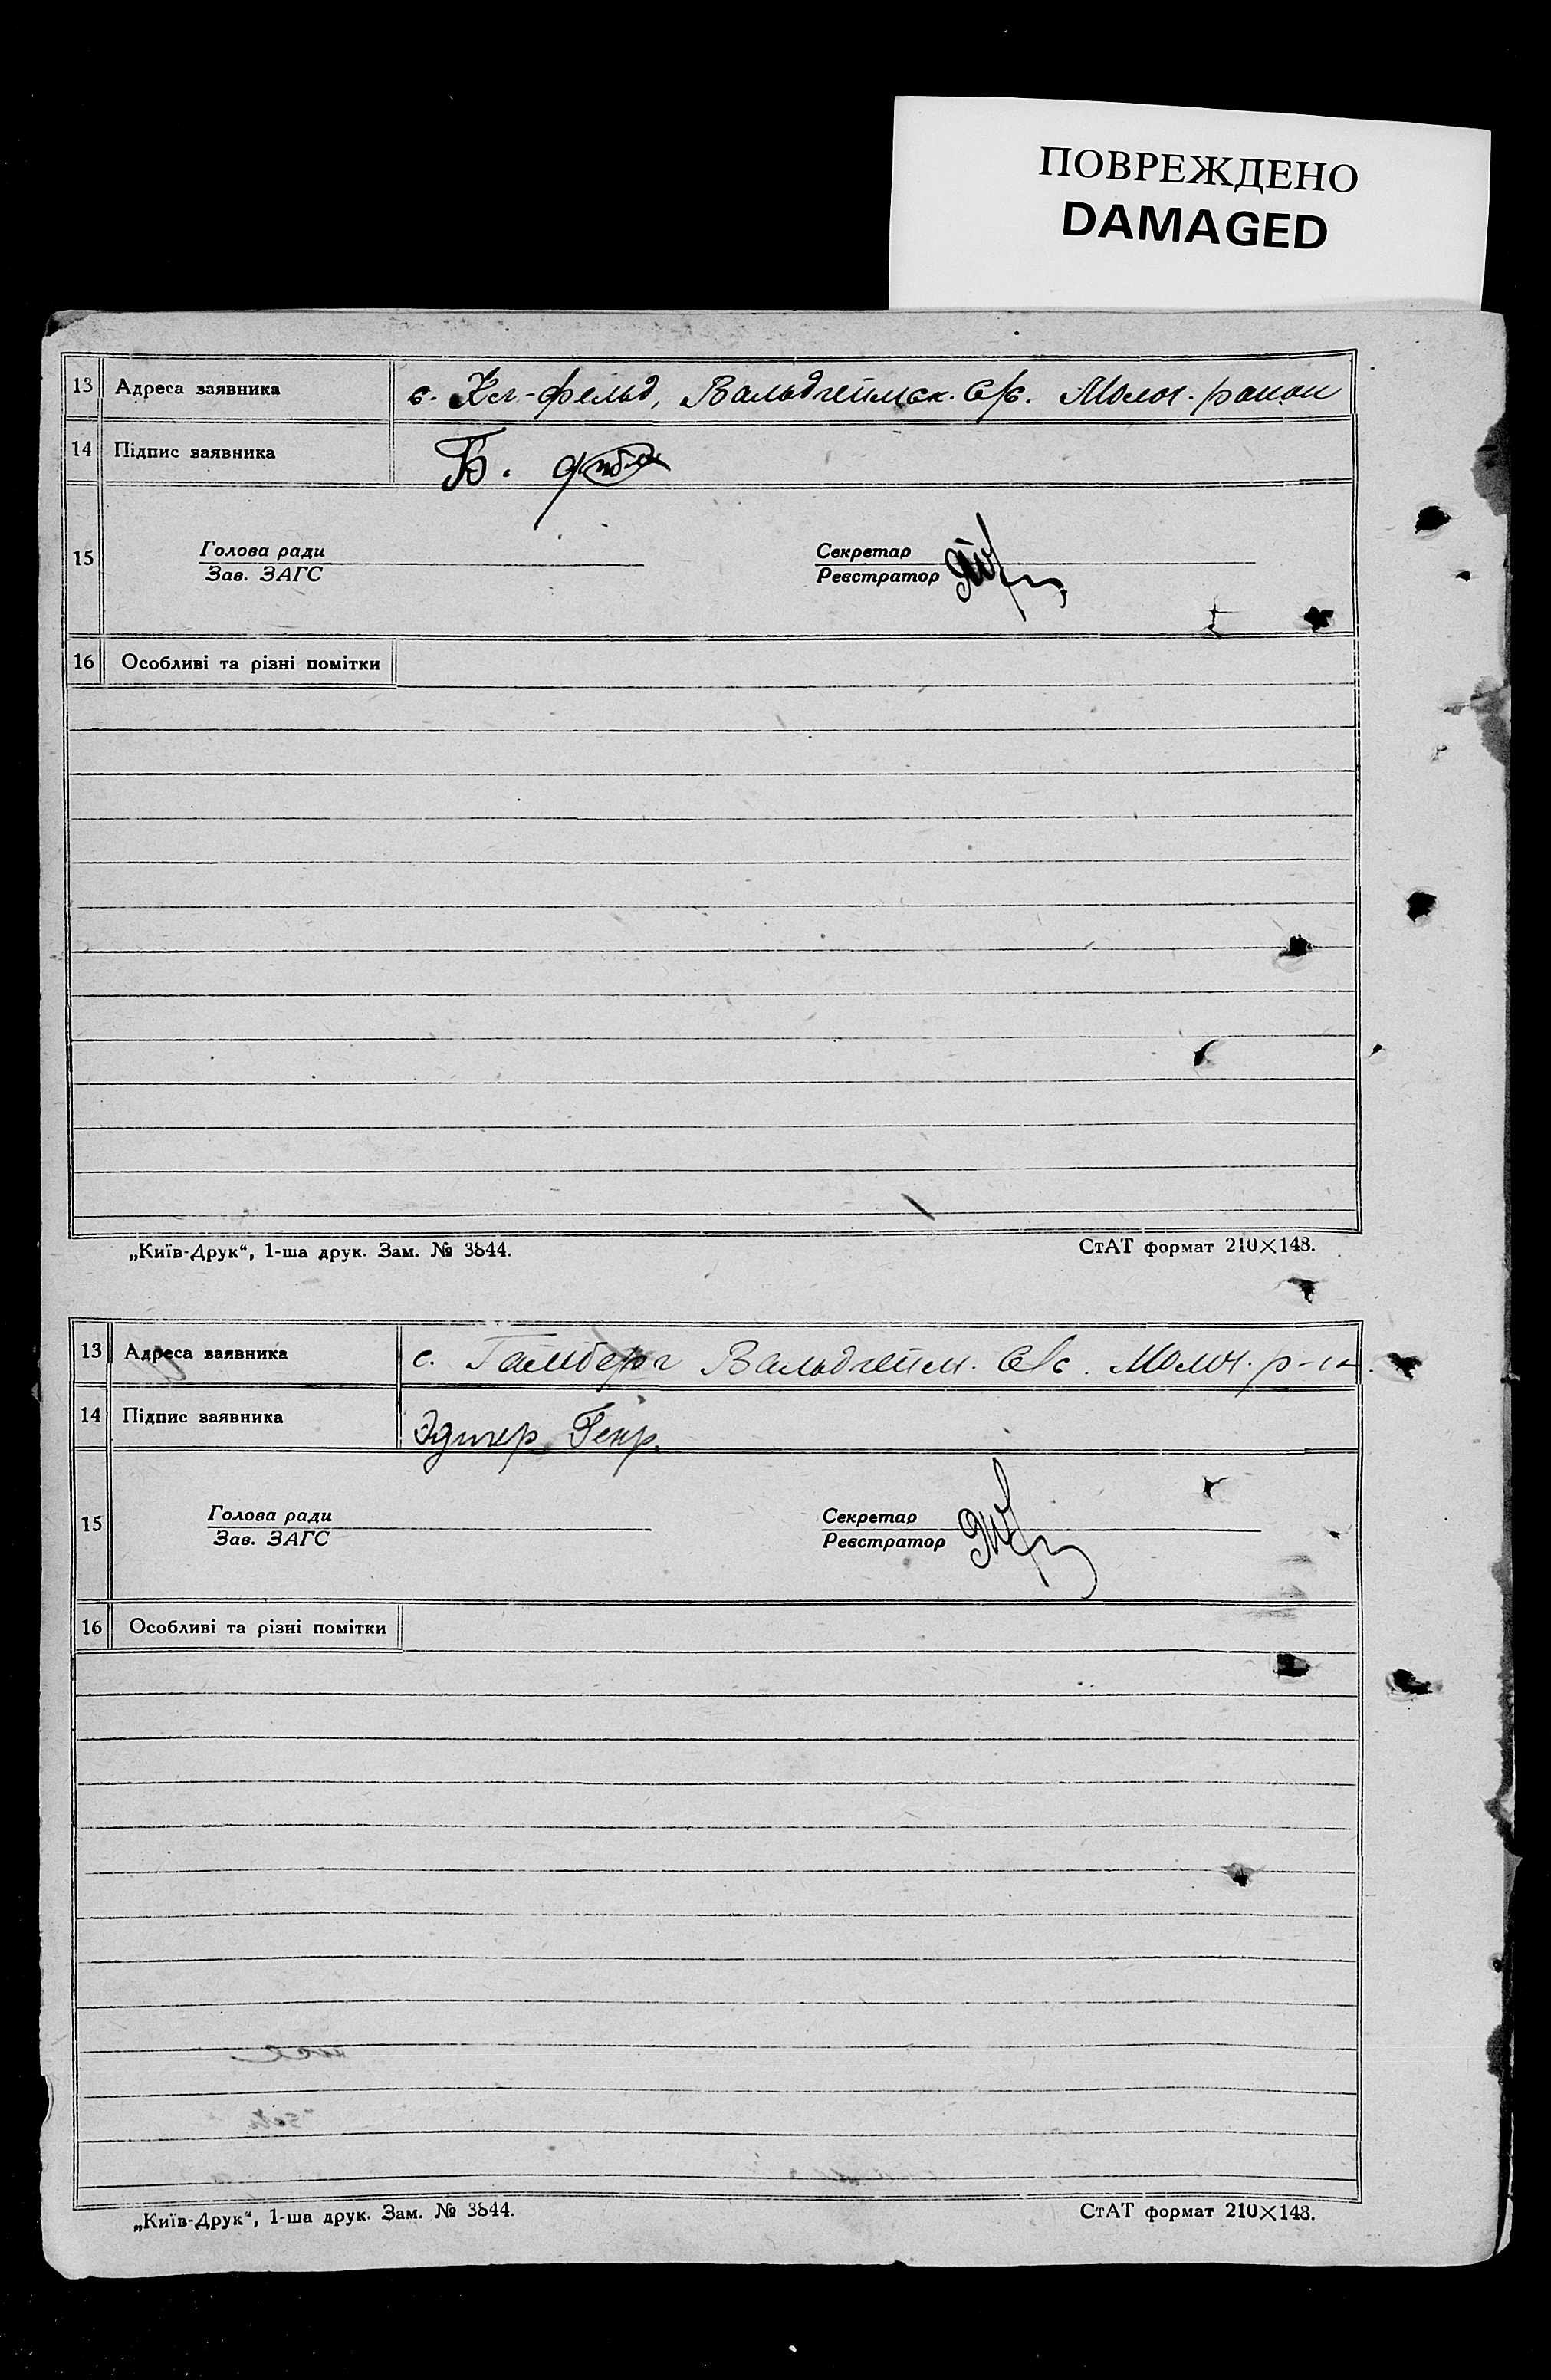 ПОВРЕЖДЕНО
DAMAGED
13 Адреса заявника с. Кл-фельд, Вальдгеймск. С/с. Молоч. район
14 Підпис заявника Б.
15 Голова ради Секретар
Зав. ЗАГС Реєстратор
16 Особливі та різні помітки
„Київ-Друк“, 1-ша друк. Зам. № 3844. СтАТ формат 210×148.
13 Адреса заявника с. Гамберг Вальдгейм. С/с. Молоч. р-он.
14 Підпис заявника Эдигер Генр.
15 Голова ради Секретар
Зав. ЗАГС Реєстратор
16 Особливі та різні помітки
„Київ-Друк“, 1-ша друк. Зам. № 3844. СтАТ формат 210×148.